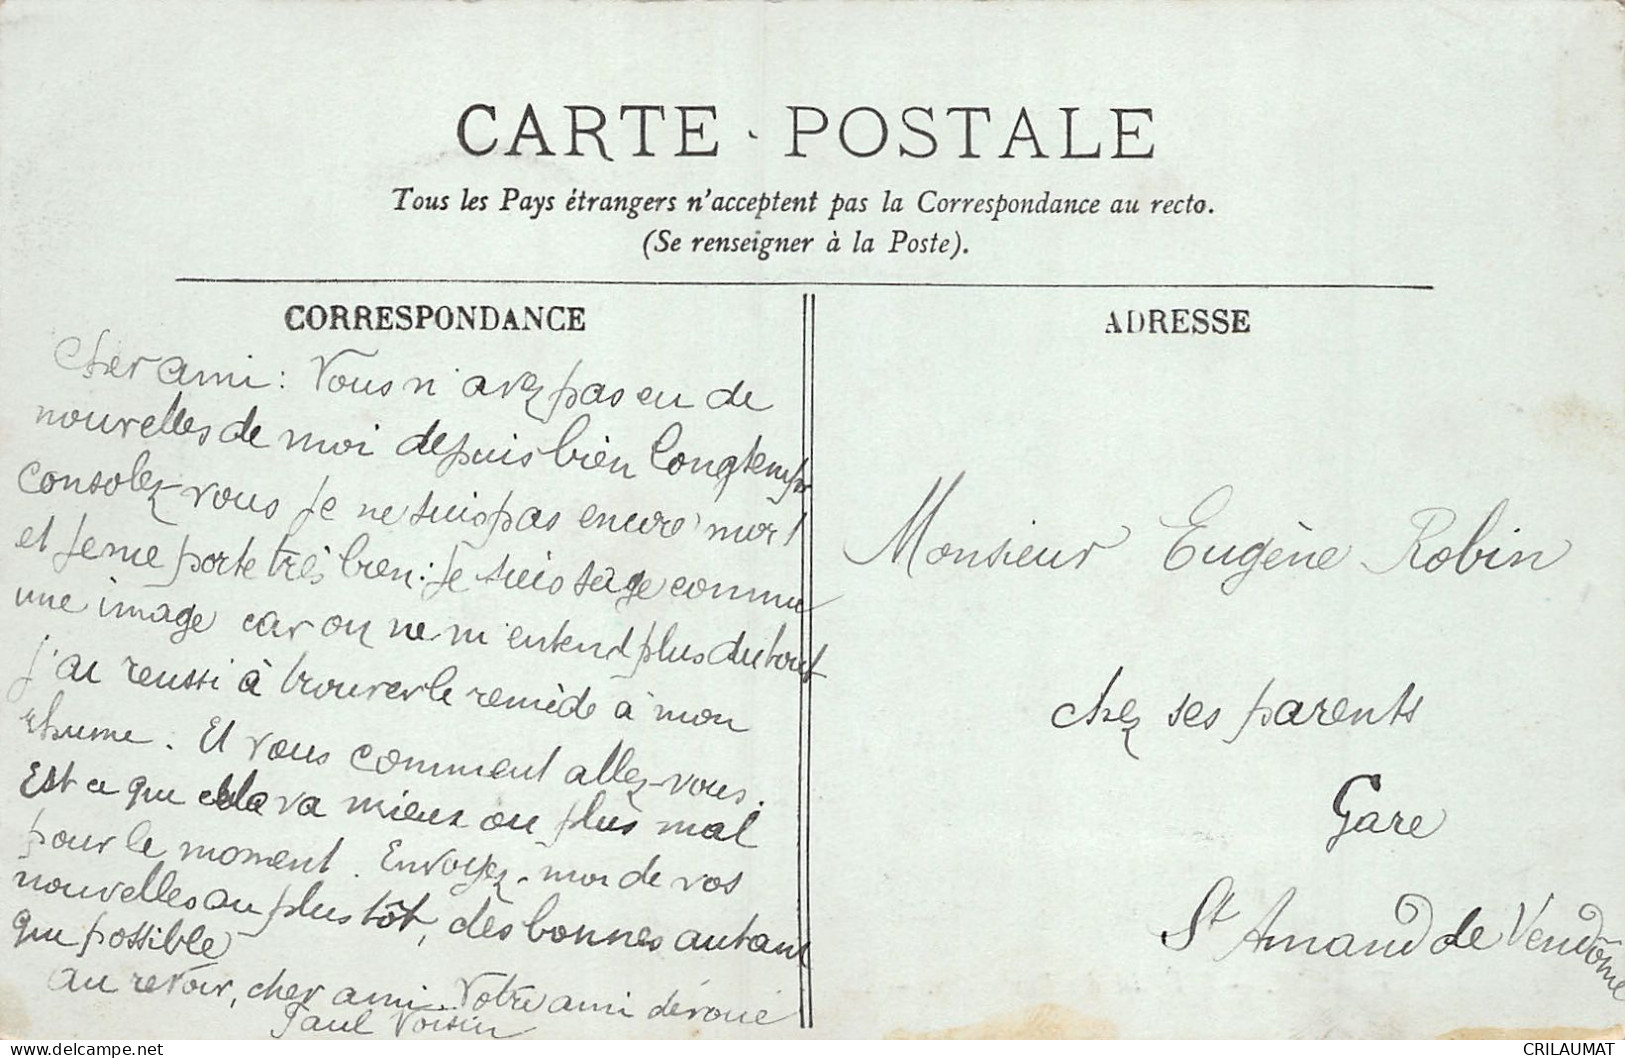 CARTE - POSTALE
Tous les Pays étrangers n'acceptent pas la Correspondance au recto.
(Se renseigner à la Poste).
CORRESPONDANCE
Cher ami : Vous n'avez pas eu de
nouvelles de moi depuis bien longtemps
consolez-vous je ne suis pas encore mort
et je me porte très bien : je suis sage comme
une image car on ne m'entend plus du tout
j'ai reussi à trouver le remède à mon
rhume. Et vous comment allez-vous.
Est ce que cela va mieux ou plus mal
pour le moment. Envoyez-moi de vos
nouvelles au plus tôt, des bonnes autant
que possible
au revoir, cher ami. Votre ami dévoué
Paul Voisin
ADRESSE
Monsieur Eugène Robin
chez ses parents
Gare
St Amand de Vendôme
delcampe.net
CRILAUMAT